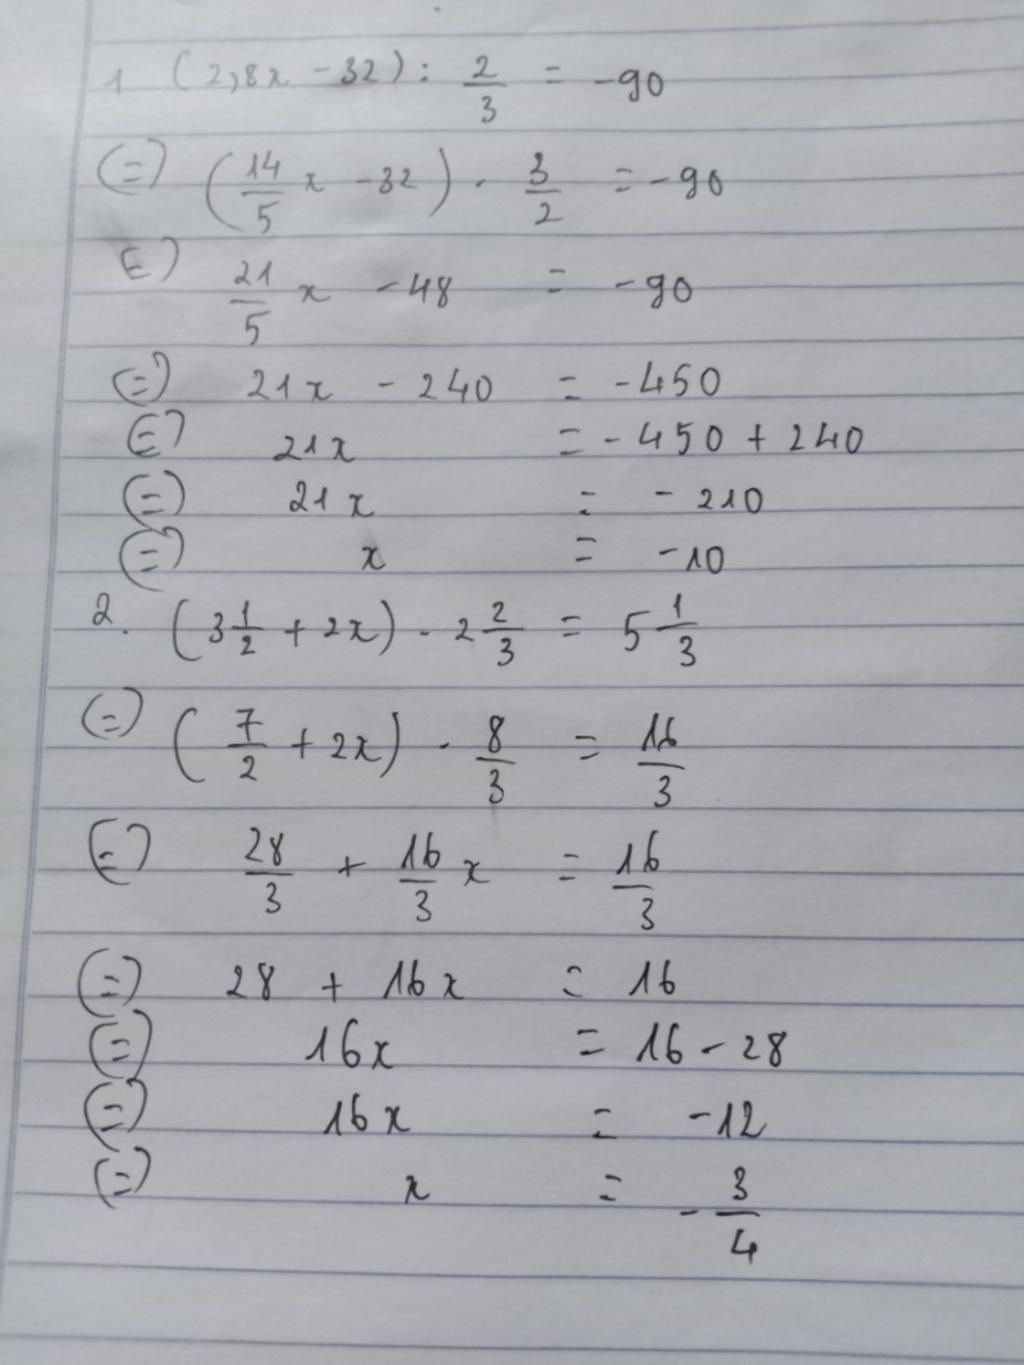 1 (2,8x - 32) : 2/3 = -90
(=) (14/5 x - 32) . 3/2 = -90
(=) 21/5 x - 48 = -90
(=) 21x - 240 = -450
(=) 21x = -450 + 240
(=) 21x = -210
(=) x = -10
2. (3 1/2 + 2x) . 2 2/3 = 5 1/3
(=) (7/2 + 2x) . 8/3 = 16/3
(=) 28/3 + 16/3 x = 16/3
(=) 28 + 16x = 16
(=) 16x = 16 - 28
(=) 16x = -12
(=) x = -3/4